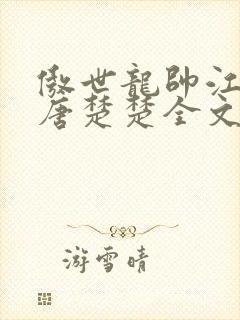 傲世龍帥江
唐楚楚全文
游雪晴